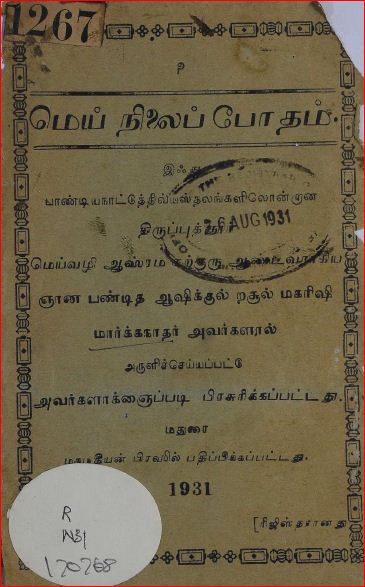 1267
மெய் நிலைப் போதம்.
இஃது
பாண்டியநாட்டுத்திவ்யஸ்தலங்களிலொன்றான
26 AUG 1931
மெய்வழி ஆஸ்ரம சற்குரு ஆண்டவராகிய
ஞான பண்டித ஆஷிக்குல் றசூல் மகரிஷி
மார்க்கநாதர் அவர்களால்
அருளிச்செய்யப்பட்டு
அவர்களாக்ஞைப்படி பிரசுரிக்கப்பட்டது.
மதுரை
பிரஸில் பதிப்பிக்கப்பட்டது.
1931
[ரிஜிஸ்தரானது
R
N31
120768